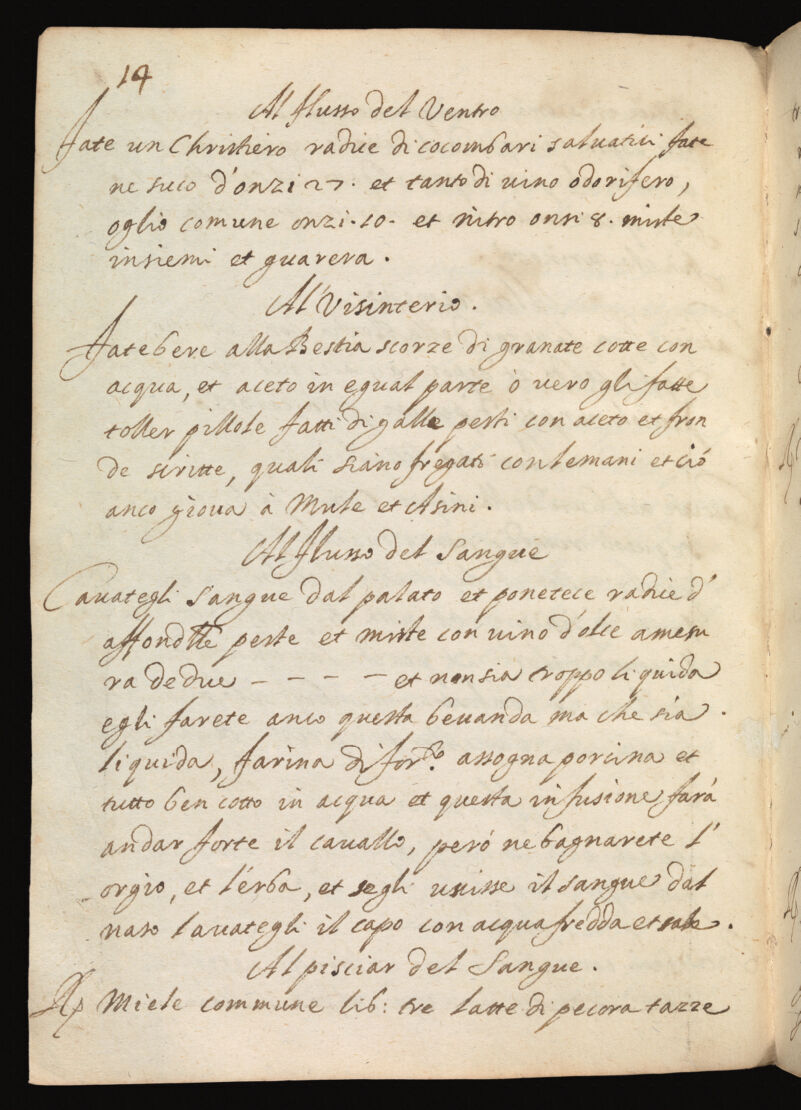 14
Al flusso del Ventro
Fate un Christiero radice di cocombari saluatici fate
ne suco d'onzi 27. et tanto di uino odorifero,
oglio comune onzi. 10. et nitro onsi 8. miste
insiemi et guarera.
Al Visinterio.
Fate bere alla Bestia scorze di granate cotte con
acqua, et aceto in egual parte ò vero gli fatte
toller pillole fatti di galle pesti con aceto et fron
de scritte, quali siano fregati con le mani et ciò
anco gioua à Mule et Asini.
Al flusso del Sangue
Cauategli sangue dal palato et ponetece radice d'
peste et miste con uino dolce a mesu
ra de due - - - - et non sia troppo liquida
egli farete anco questa beuanda ma che sia
liquida, farina di for.to assogna porcina et
tutto ben cotto in acqua et questa infusione farà
andar forte il cauallo, però ne bagnarete l'
orgio, et l'erba, et se gli uscisse il sangue dal
naso lauategli il capo con acqua fredda et sale.
Al pisciar del Sangue.
Rp Miele commune lib: tre latte di pecora tazze